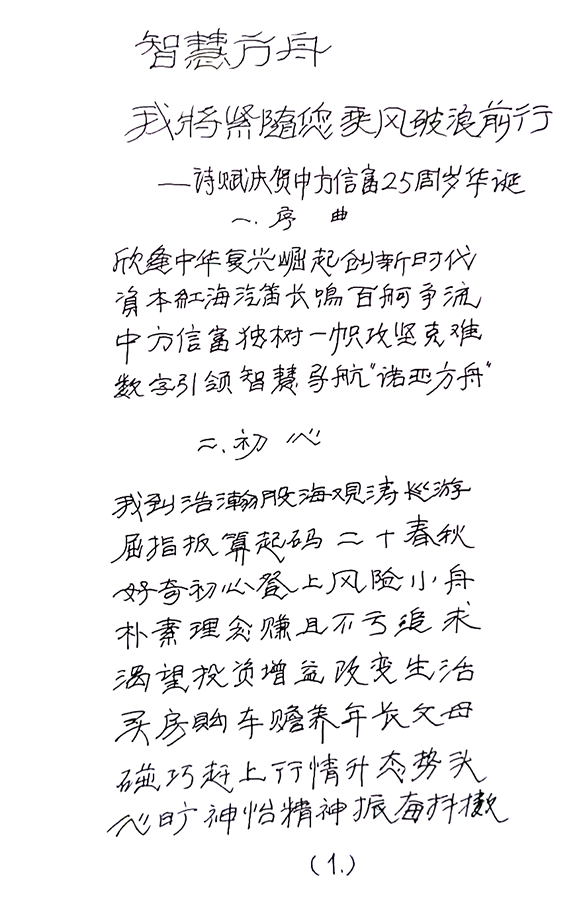 智慧方舟
我将紧随您乘风破浪前行
——诗赋庆贺中方信富25周岁华诞
一.序 曲
欣逢中华复兴崛起创新时代
資本紅海汽笛长鳴百舸争流
中方信富独树一帜攻坚克难
数字引领智慧导航"诺亚方舟"
二.初 心
我到浩瀚股海观涛巡游
屈指扳算起码二十春秋
好奇初心登上风险小舟
朴素理念赚且不亏追求
渴望投资增益改变生活
买房購车赡养年长父母
碰巧赶上行情升态势头
心旷神怡精神振奋抖擞
(1.)